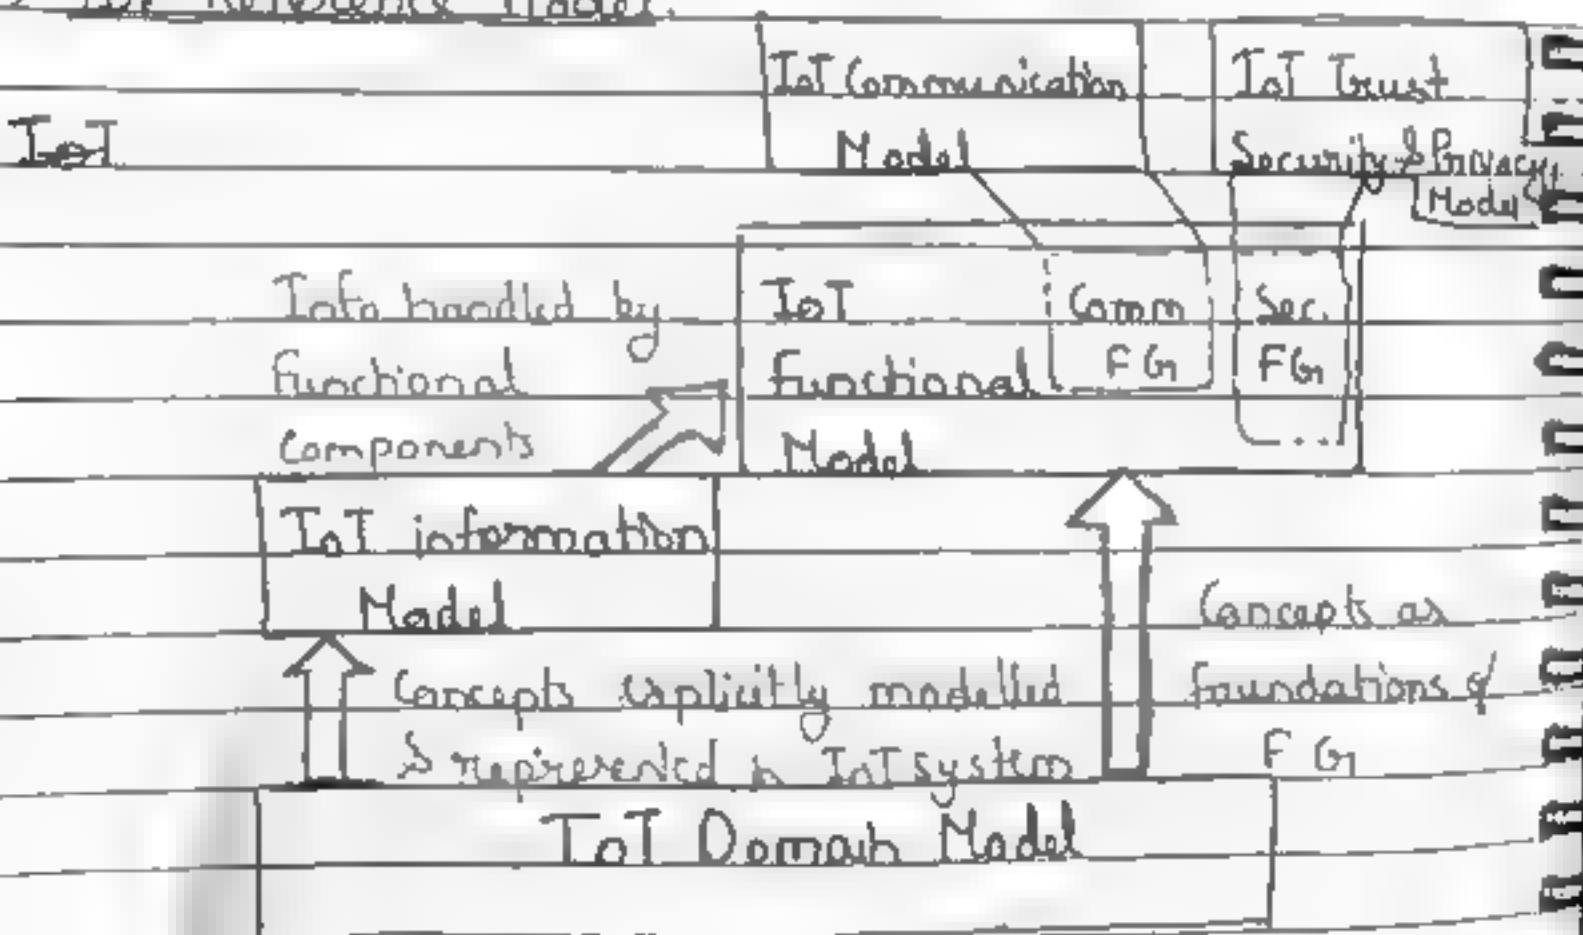 IoT Reference Model.
IoT Communication
Model
IoT Trust
Security & Privacy
Model
IoT
Info handled by
functional
components
IoT
functional
Model
Comm
FG
Sec.
FG
IoT information
Model
Concepts as
foundations of
FG
Concepts explicitly modelled
& represented in IoT system
IoT Domain Model